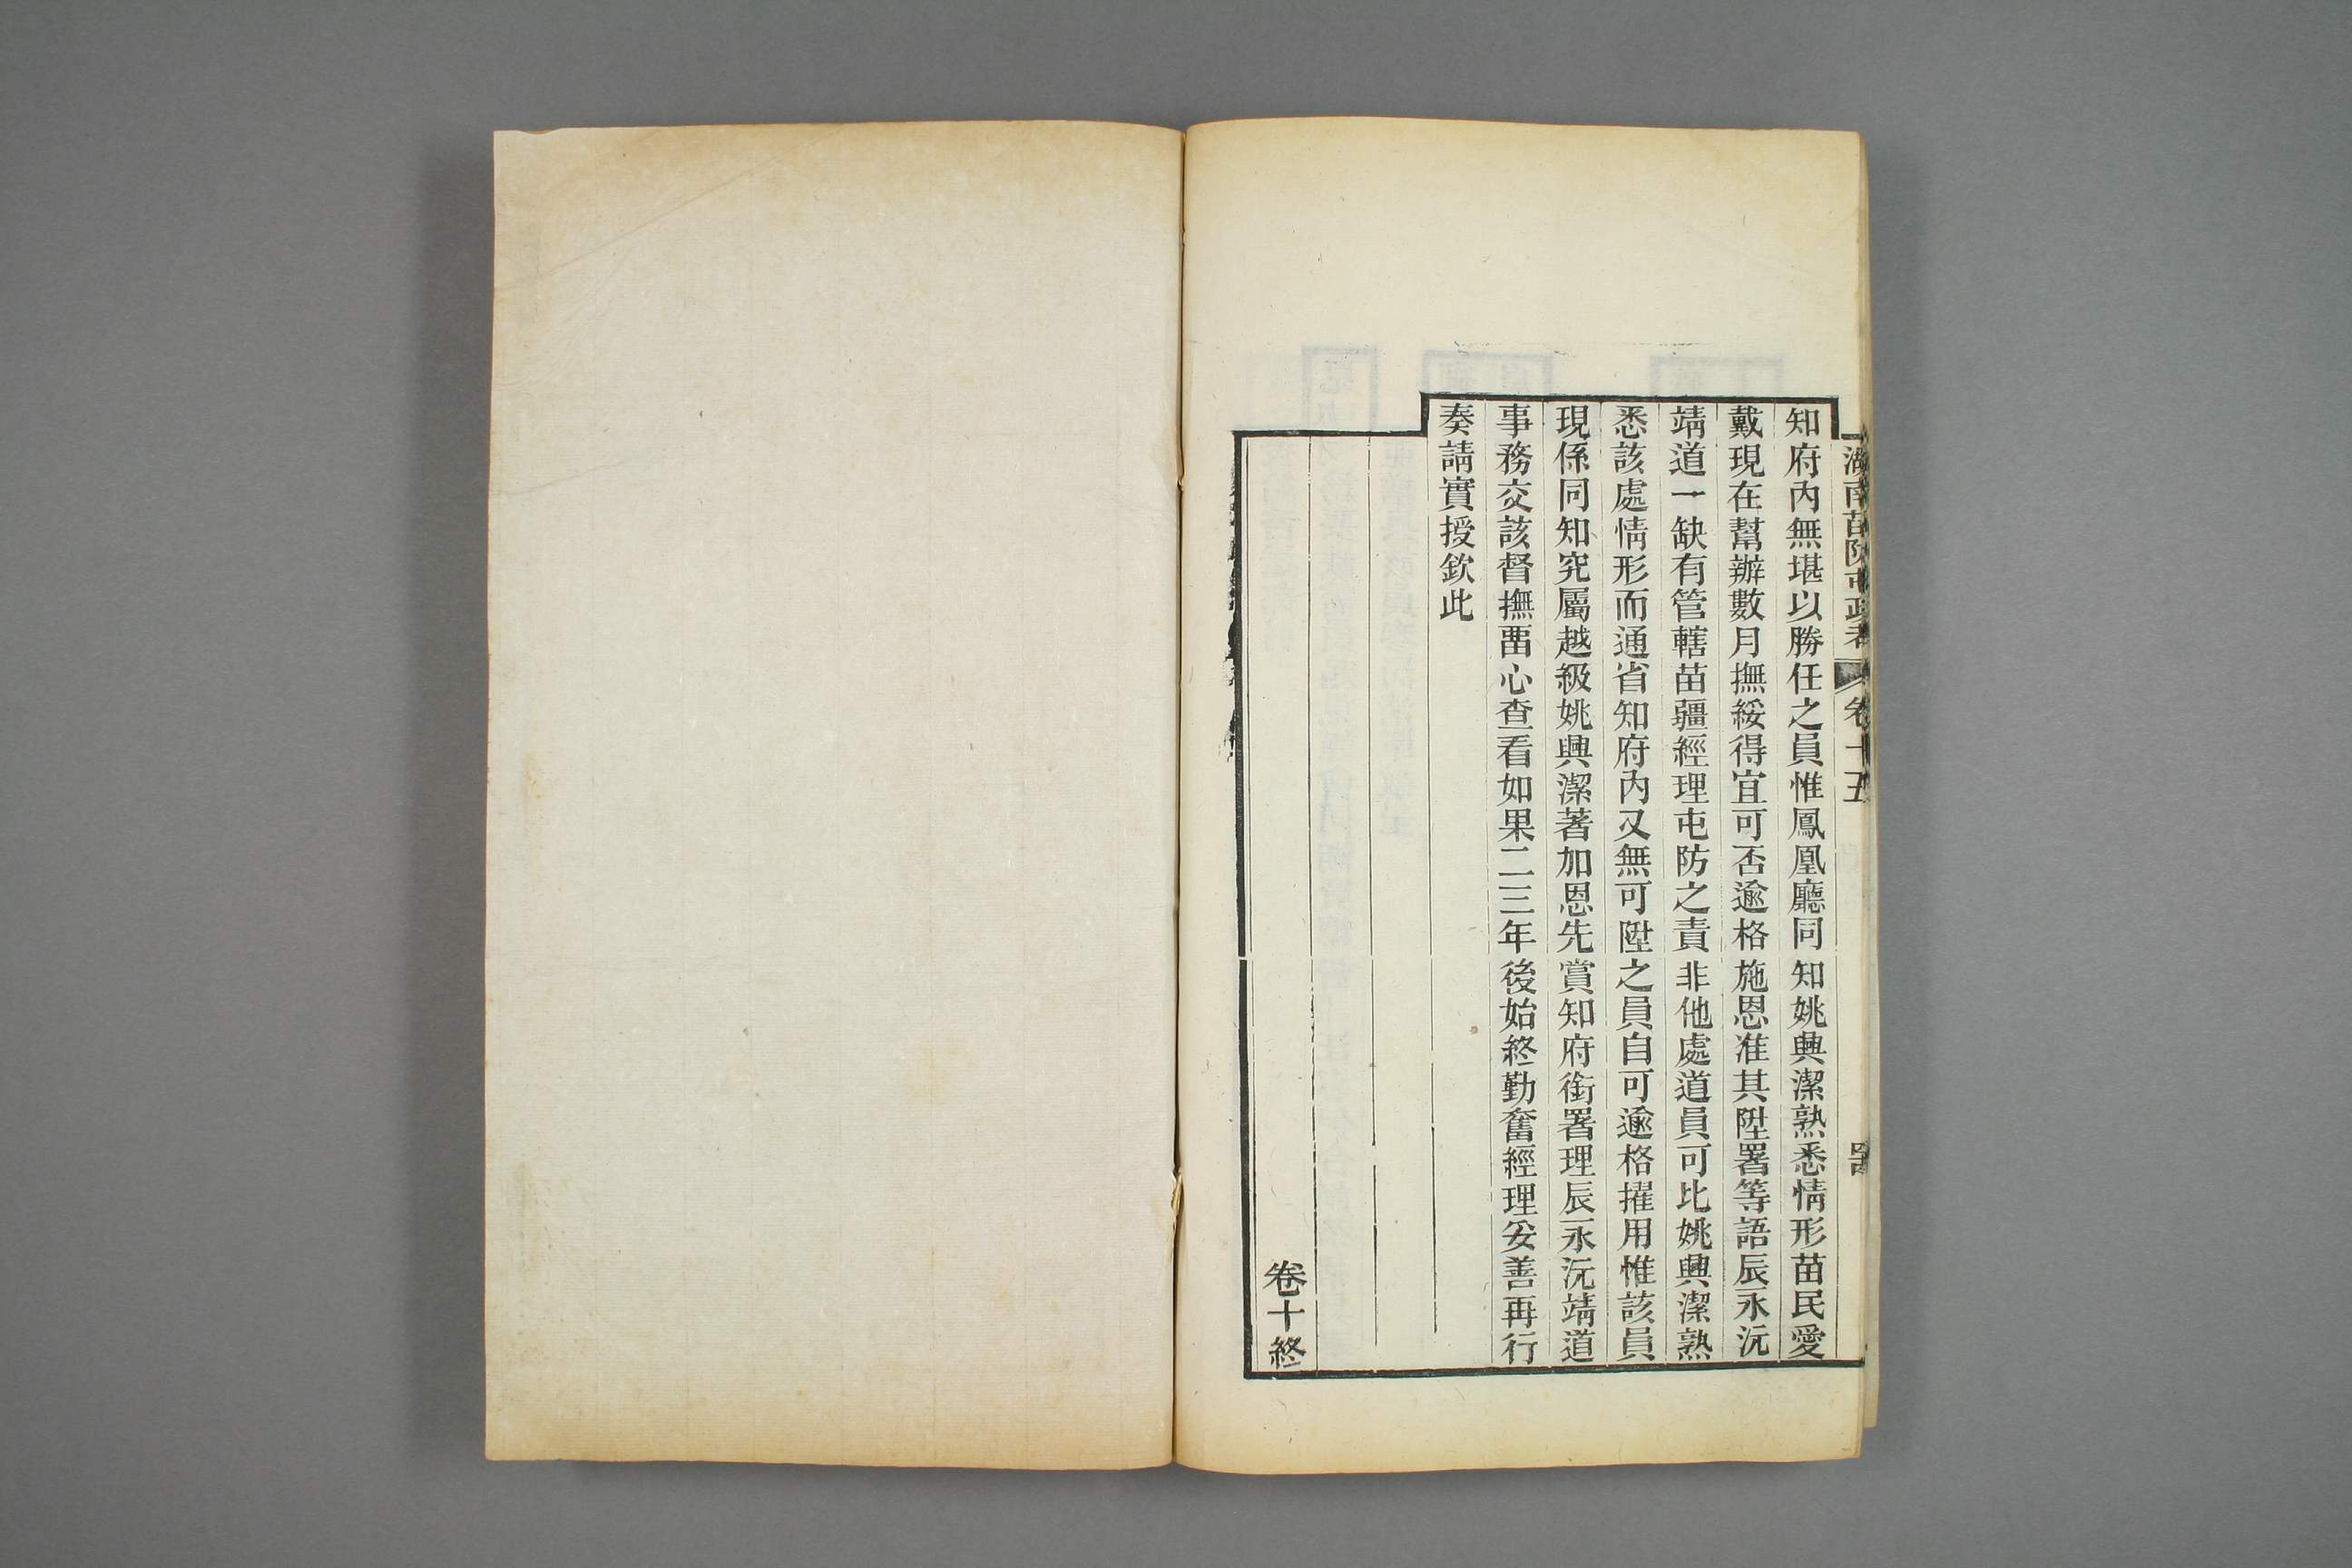 湖南苗防屯政考 卷十五
知府內無堪以勝任之員惟鳳凰廳同知姚興潔熟悉情形苗民愛
戴現在幫辦數月撫綏得宜可否逾格施恩准其陞署等語辰永沅
靖道一缺有管轄苗疆經理屯防之責非他處道員可比姚興潔熟
悉該處情形而通省知府內又無可陞之員自可逾格擢用惟該員
現係同知究屬越級姚興潔著加恩先賞知府銜署理辰永沅靖道
事務交該督撫畱心查看如果二三年後始終勤奮經理妥善再行
奏請實授欽此
卷十終